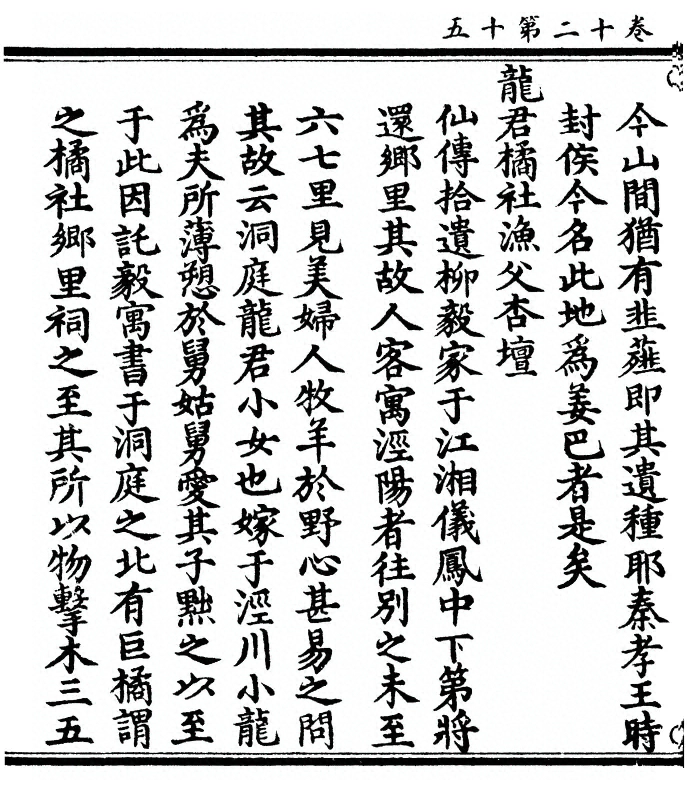 卷十二第十五
今山間猶有韭薤即其遺種耶秦孝王時
封侯今名此地為姜巴者是矣
龍君橘社漁父杏壇
仙傳拾遺柳毅家于江湘儀鳳中下第將
還鄉里其故人客寓涇陽者往別之未至
六七里見美婦人牧羊於野心甚易之問
其故云洞庭龍君小女也嫁于涇川小龍
為夫所薄愬於舅姑舅愛其子黜之以至
于此因託毅寓書于洞庭之北有巨橘謂
之橘社鄉里祠之至其所以物擊木三五